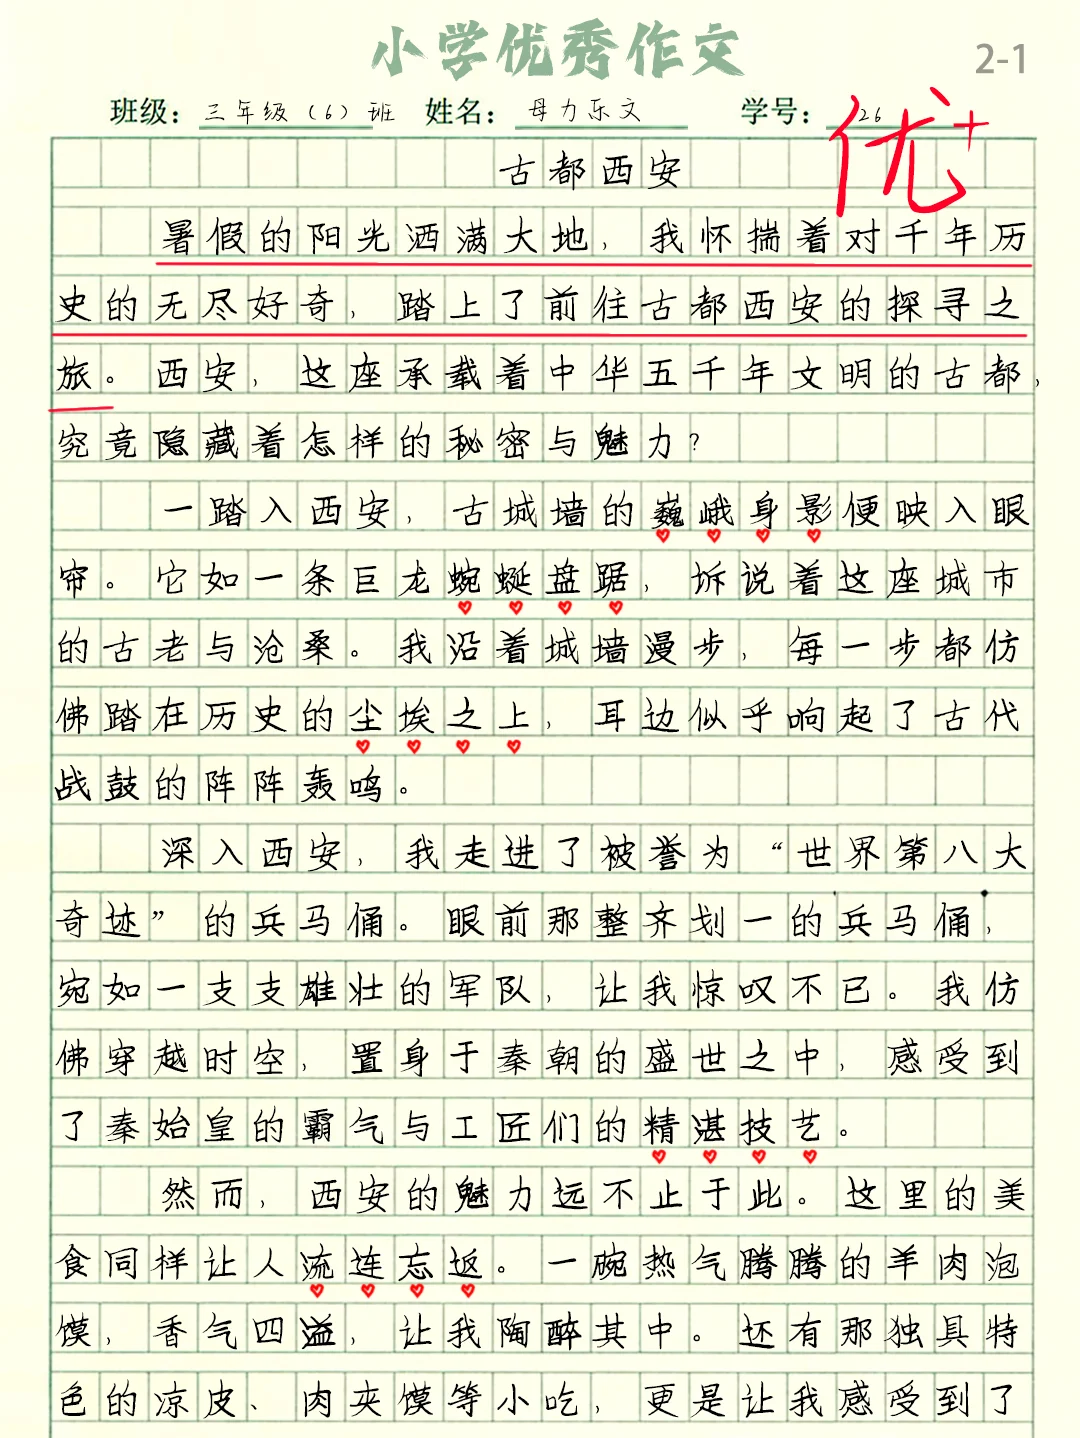 小学优秀作文
2-1
班级：三年级（6）班 姓名：母力乐文 学号：26
优+
古都西安
暑假的阳光洒满大地，我怀揣着对千年历
史的无尽好奇，踏上了前往古都西安的探寻之
旅。西安，这座承载着中华五千年文明的古都，
究竟隐藏着怎样的秘密与魅力？
一踏入西安，古城墙的巍峨身影便映入眼
帘。它如一条巨龙蜿蜒盘踞，坼说着这座城市
的古老与沧桑。我沿着城墙漫步，每一步都仿
佛踏在历史的尘埃之上，耳边似乎响起了古代
战鼓的阵阵轰鸣。
深入西安，我走进了被誉为“世界第八大
奇迹”的兵马俑。眼前那整齐划一的兵马俑，
宛如一支支雄壮的军队，让我惊叹不已。我仿
佛穿越时空，置身于秦朝的盛世之中，感受到
了秦始皇的霸气与工匠们的精湛技艺。
然而，西安的魅力远不止于此。这里的美
食同样让人流连忘返。一碗热气腾腾的羊肉泡
馍，香气四溢，让我陶醉其中。还有那独具特
色的凉皮、肉夹馍等小吃，更是让我感受到了